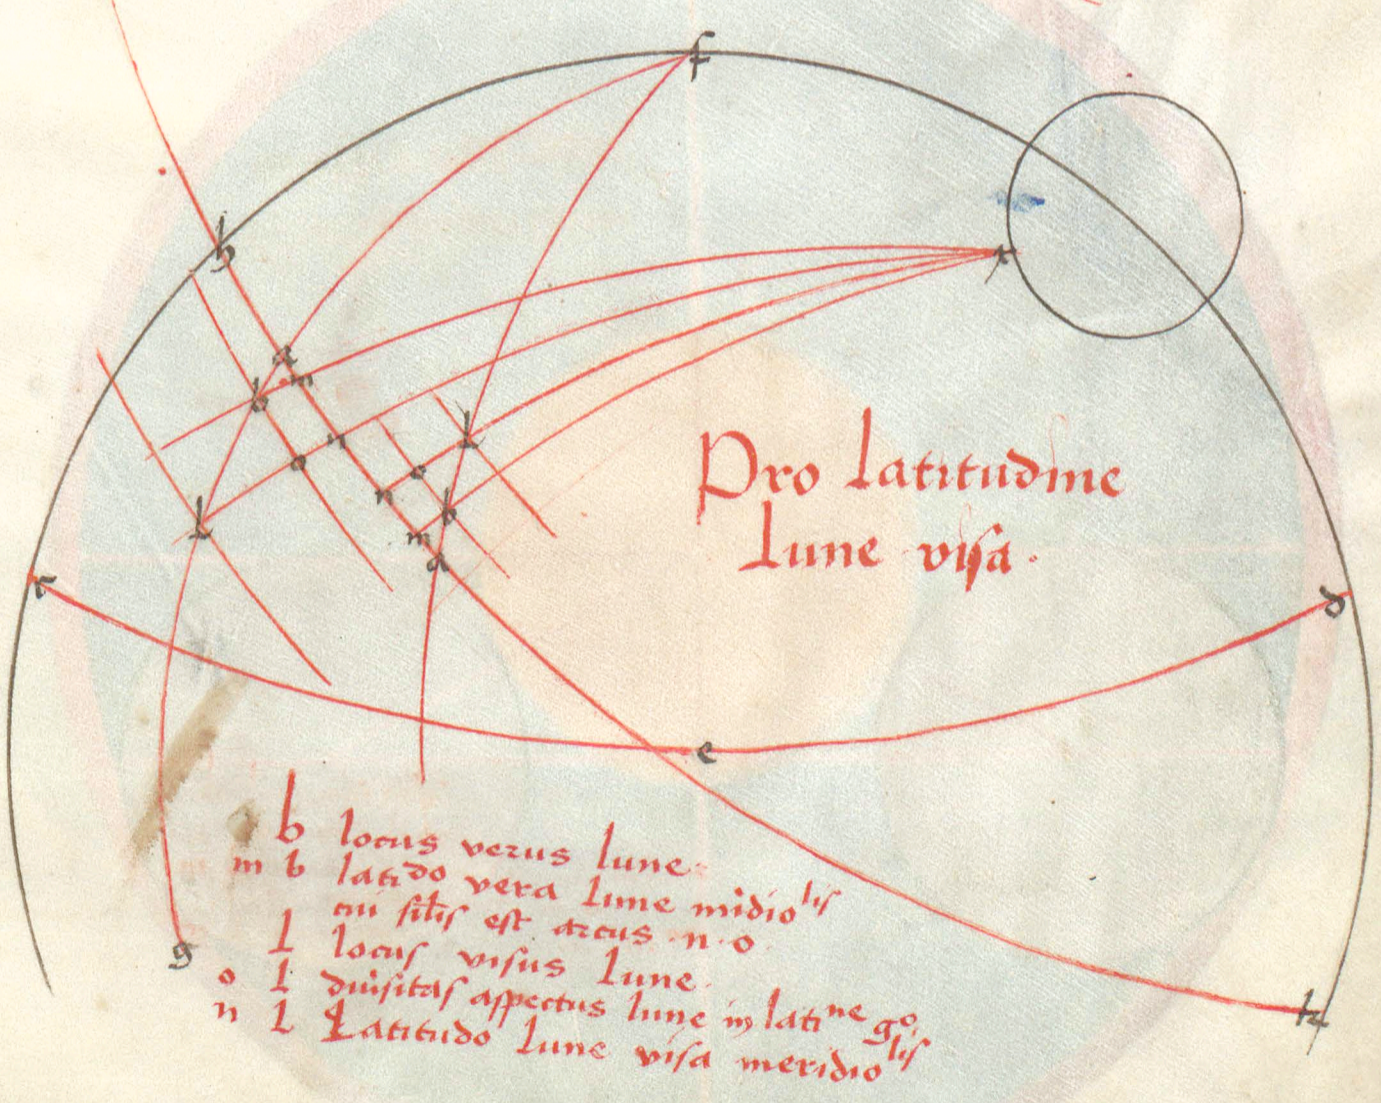 f
h
x
a
m
b
n
o
l
l
o
n
b
m
a
l
r
d
e
Pro latitudine
lune visa.
b locus verus lune
m b latido vera lune midiolis
cui silis est arcus n. o
l locus visus lune
o l diusitas aspectus lune in latine
n l Latitudo lune visa meridiolis
g
k